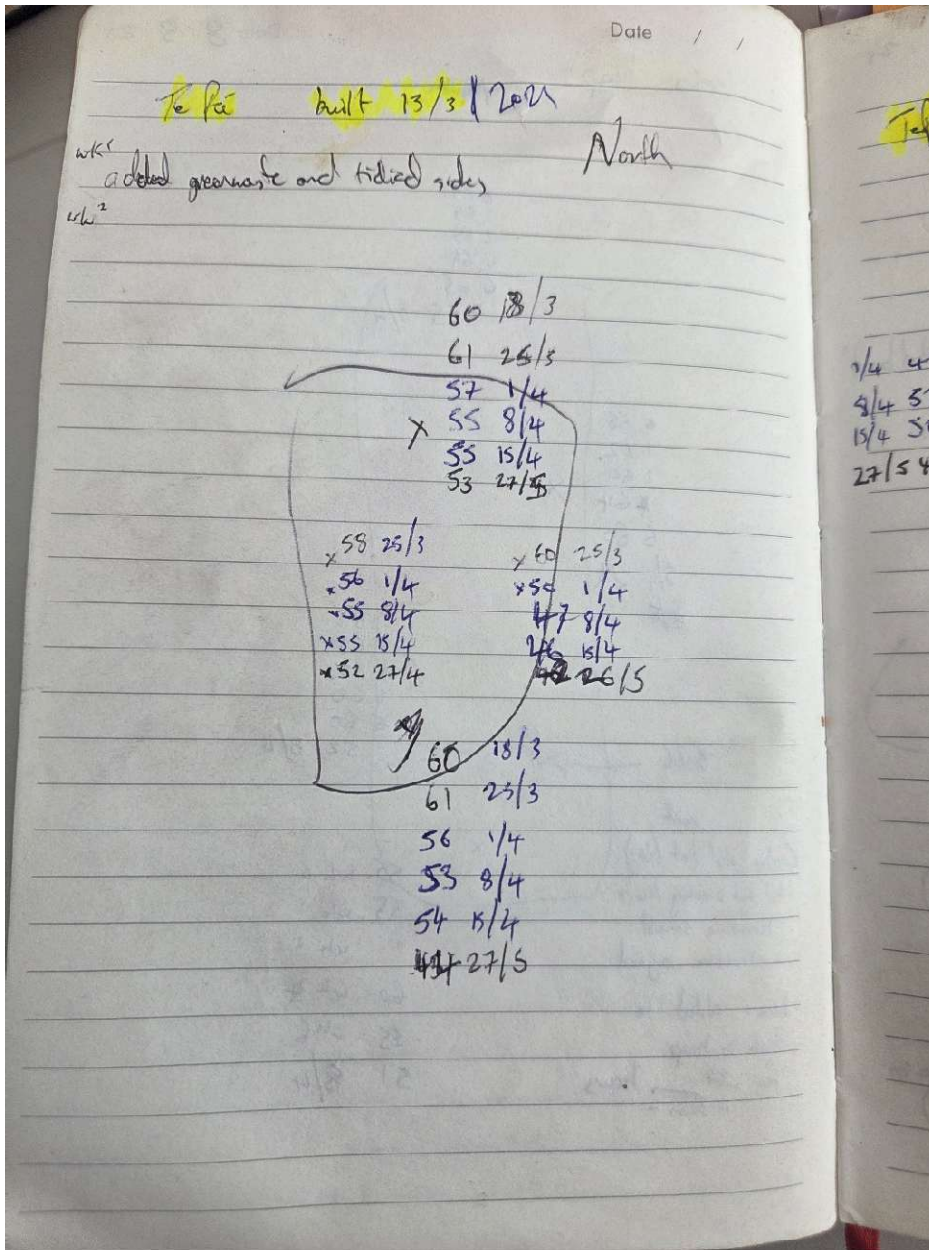 Date / /
Te Pā built 13/3/2024
North
wk1
added greenwaste and tidied sides
wk2
60 18/3
61 25/3
57 1/4
x 55 8/4
55 15/4
53 27/5
x 58 25/3
x 56 1/4
x 55 8/4
x 55 15/4
x 52 27/4
x 60 25/3
x 50 1/4
47 8/4
46 15/4
42 26/5
60 18/3
61 25/3
56 1/4
53 8/4
54 15/4
27/5
1/4
8/4
15/4
27/5